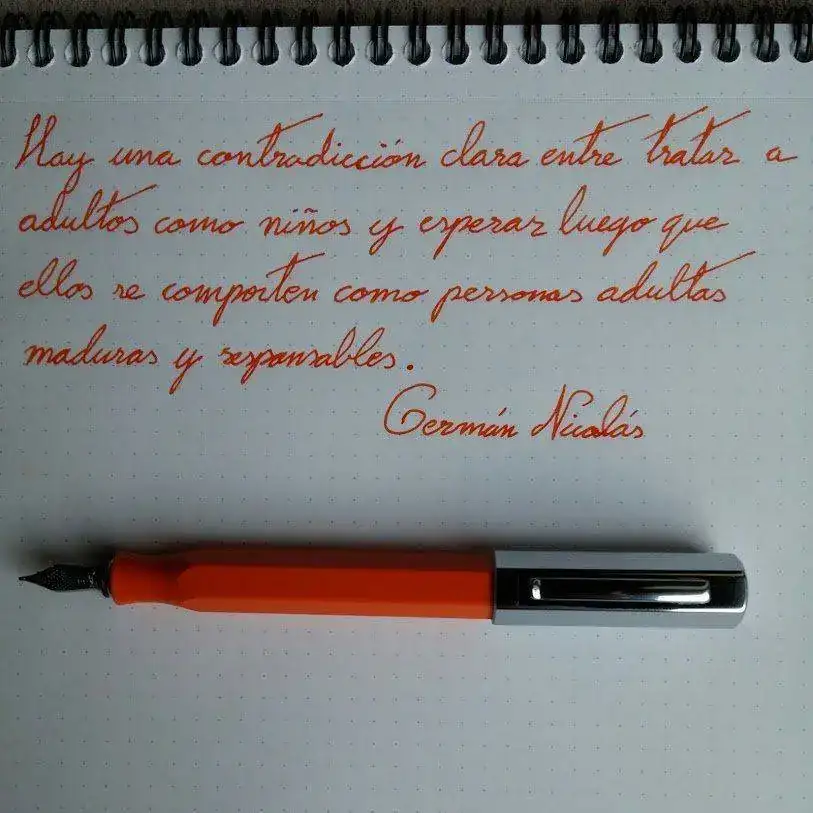 Hay una contradicción clara entre tratar a
adultos como niños y esperar luego que
ellos se comporten como personas adultas
maduras y responsables.
Germán Nicolás